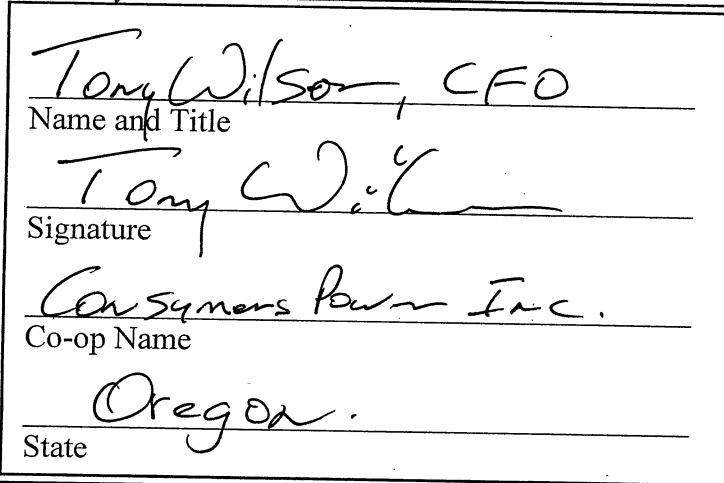 Tony Wilson, CFO
Name and Title
Tony Wil
Signature
Consumers Power Inc.
Co-op Name
Oregon.
State